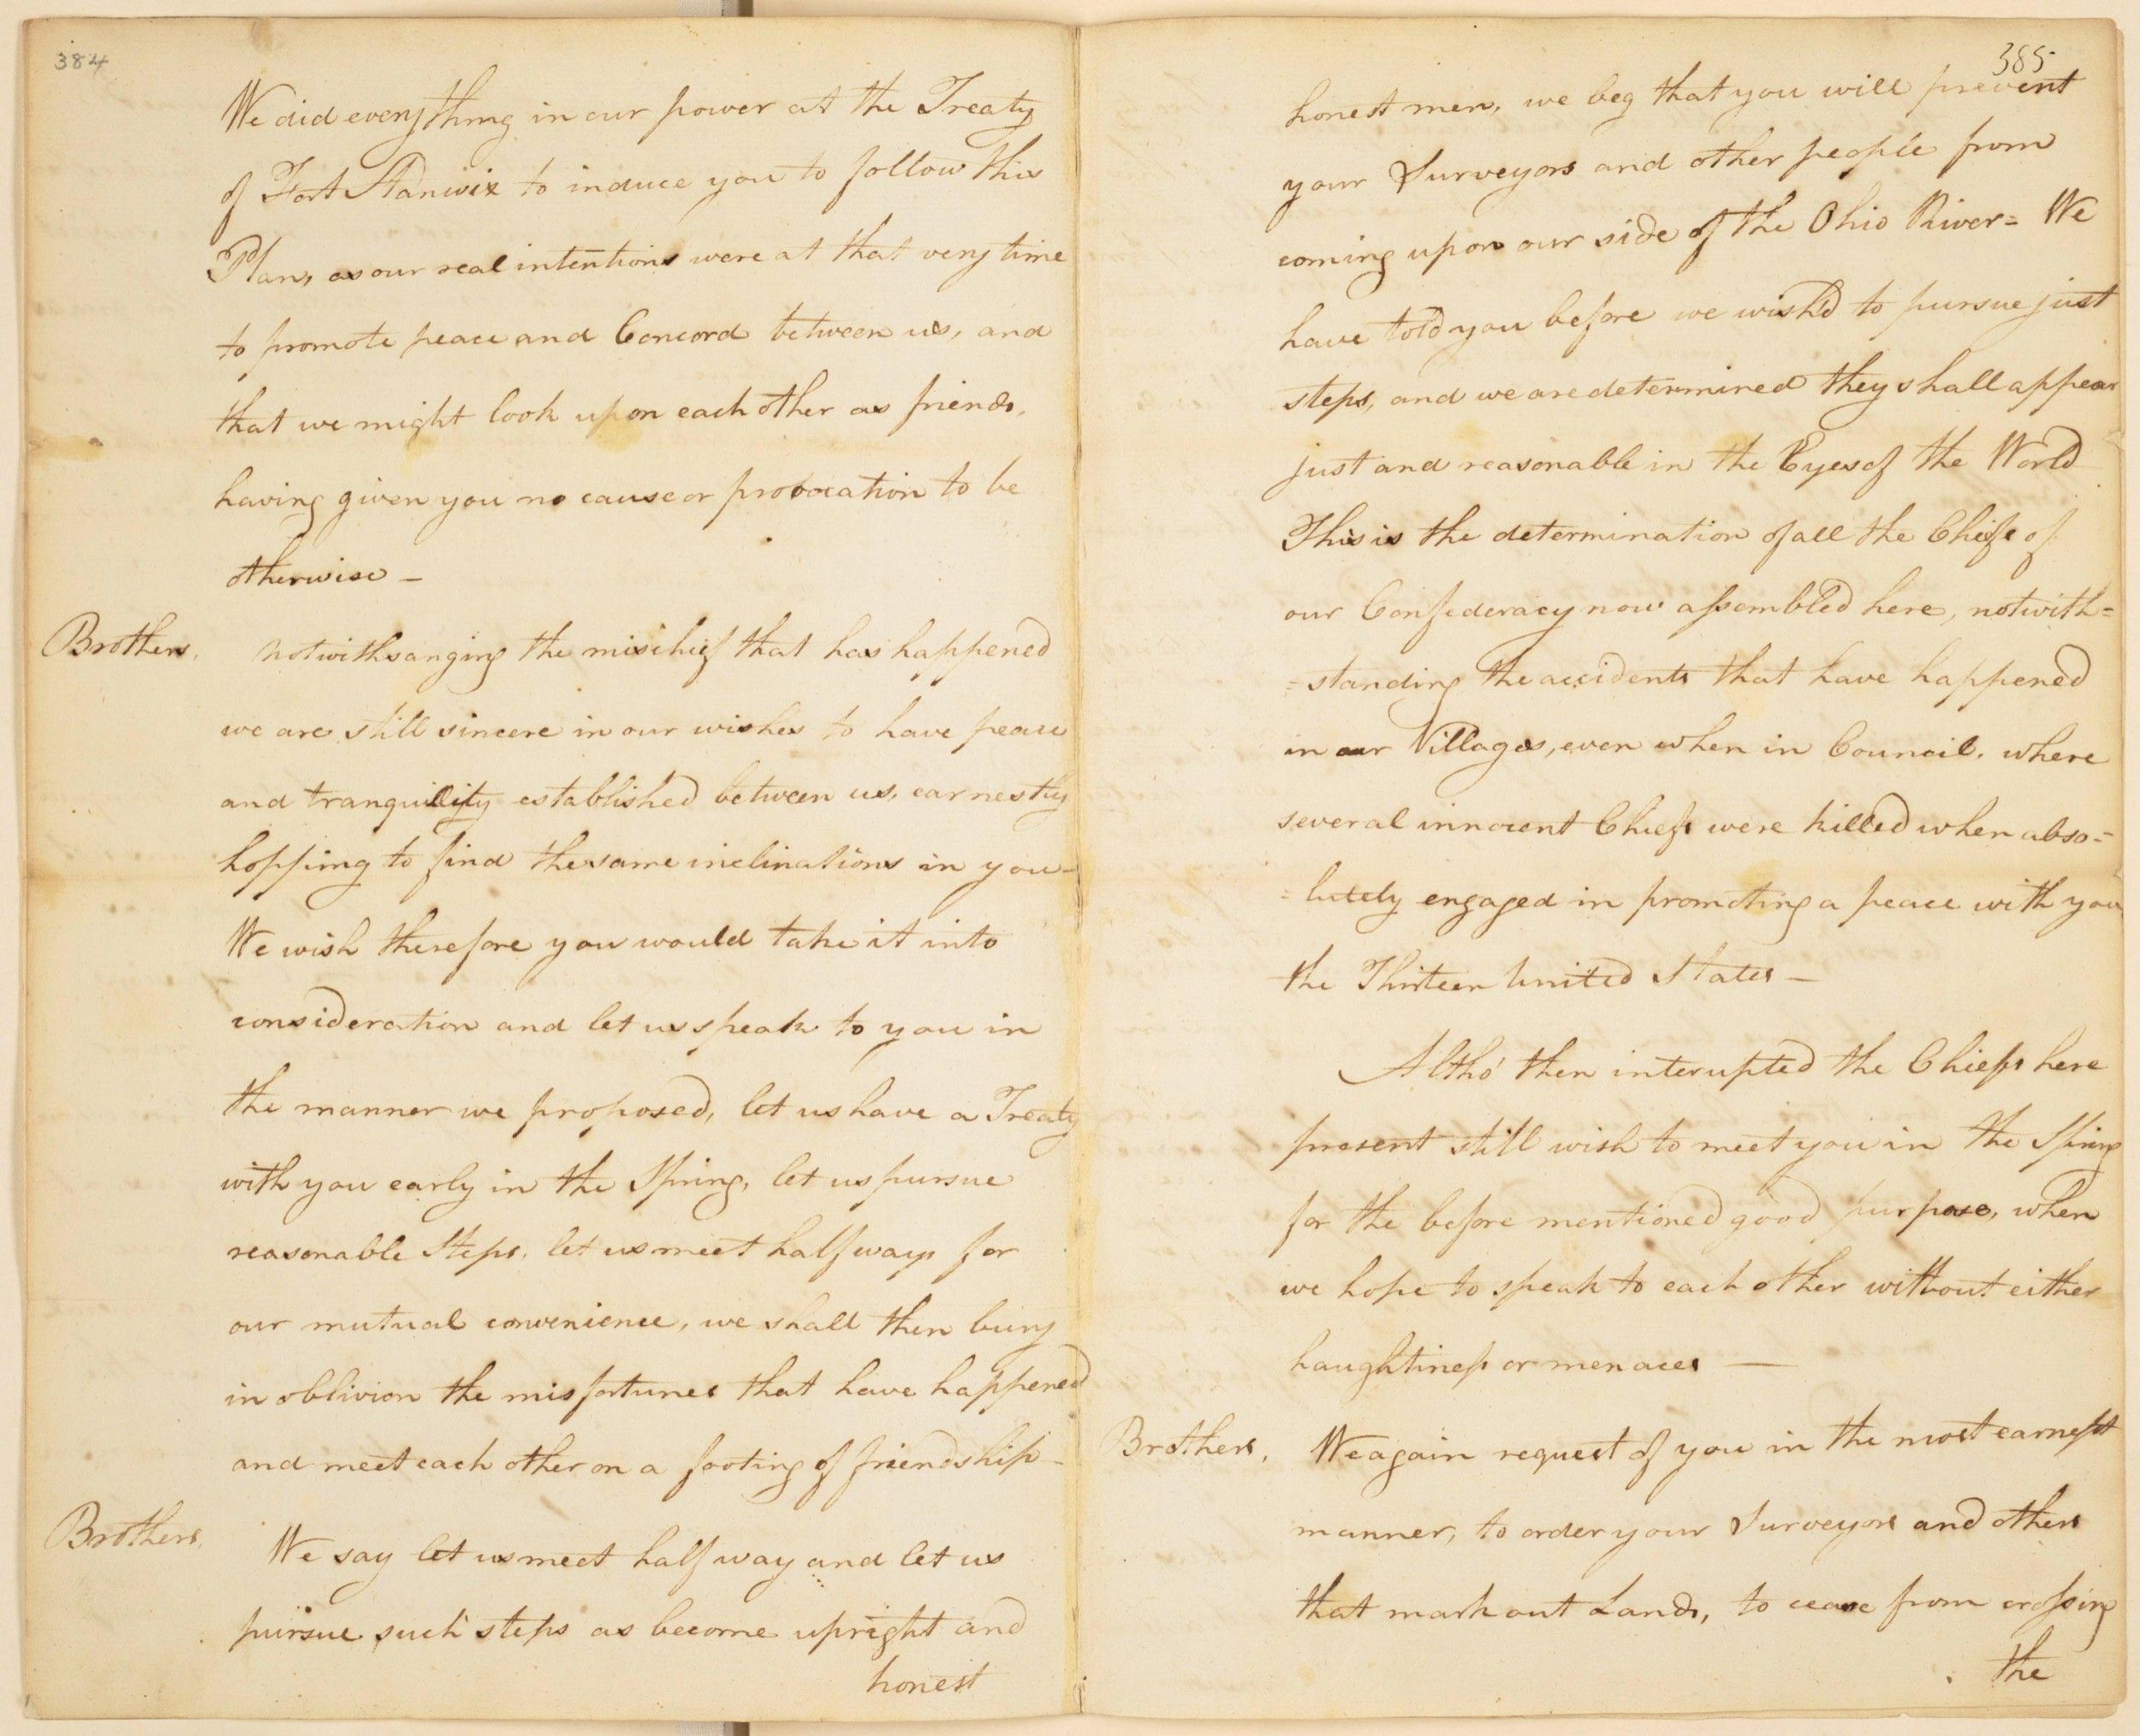 384
We did everything in our power at the Treaty
of Fort Stanwix to induce you to follow this
Plan, as our real intentions were at that very time
to promote peace and Concord between us, and
that we might look upon each other as friends,
having given you no cause or provocation to be
otherwise —
Brothers, notwithsanging the mischief that has happened
we are still sincere in our wishes to have peace
and tranquility established between us, earnestly
hopping to find the same inclinations in you —
We wish therefore you would take it into
consideration and let us speak to you in
the manner we proposed, let us have a Treaty
with you early in the Spring, let us pursue
reasonable Steps, let us meet half way for
our mutual convenience, we shall then bury
in oblivion the misfortunes that have happened
and meet each other on a footing of friendship —
Brothers, We say let us meet half way and let us
pursue such steps as become upright and
honest
385
honest men, we beg that you will prevent
your Surveyors and other people from
coming upon our side of the Ohio River = We
have told you before we wish'd to pursue just
steps, and we are determined they shall appear
just and reasonable in the Eyes of the World
This is the determination of all the Chiefs of
our Confederacy now assembled here, notwith=
=standing the accidents that have happened
in our Villages, even when in Council, where
several innocent Chiefs were killed when abso=
=lutely engaged in promoting a peace with you
the Thirteen United States —
Altho' then interupted the Chiefs here
present still wish to meet you in the Spring
for the before mentioned good purpose, when
we hope to speak to each other without either
haughtiness or menaces —
Brothers, We again request of you in the most earnest
manner, to order your Surveyors and others
that mark out Lands, to cease from crossing
the